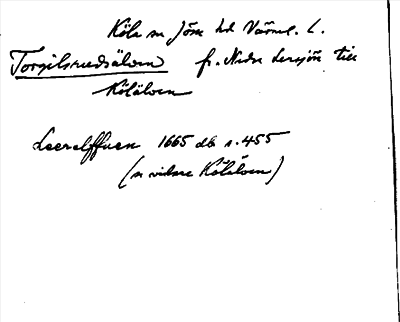 Köla sn Jöse hd Värml. l.
Torgilsrudsälven fr. Nedre Lersjön till
Kölälven
Leerelffuen 1665 db s. 455
(se vidare Kölälven)